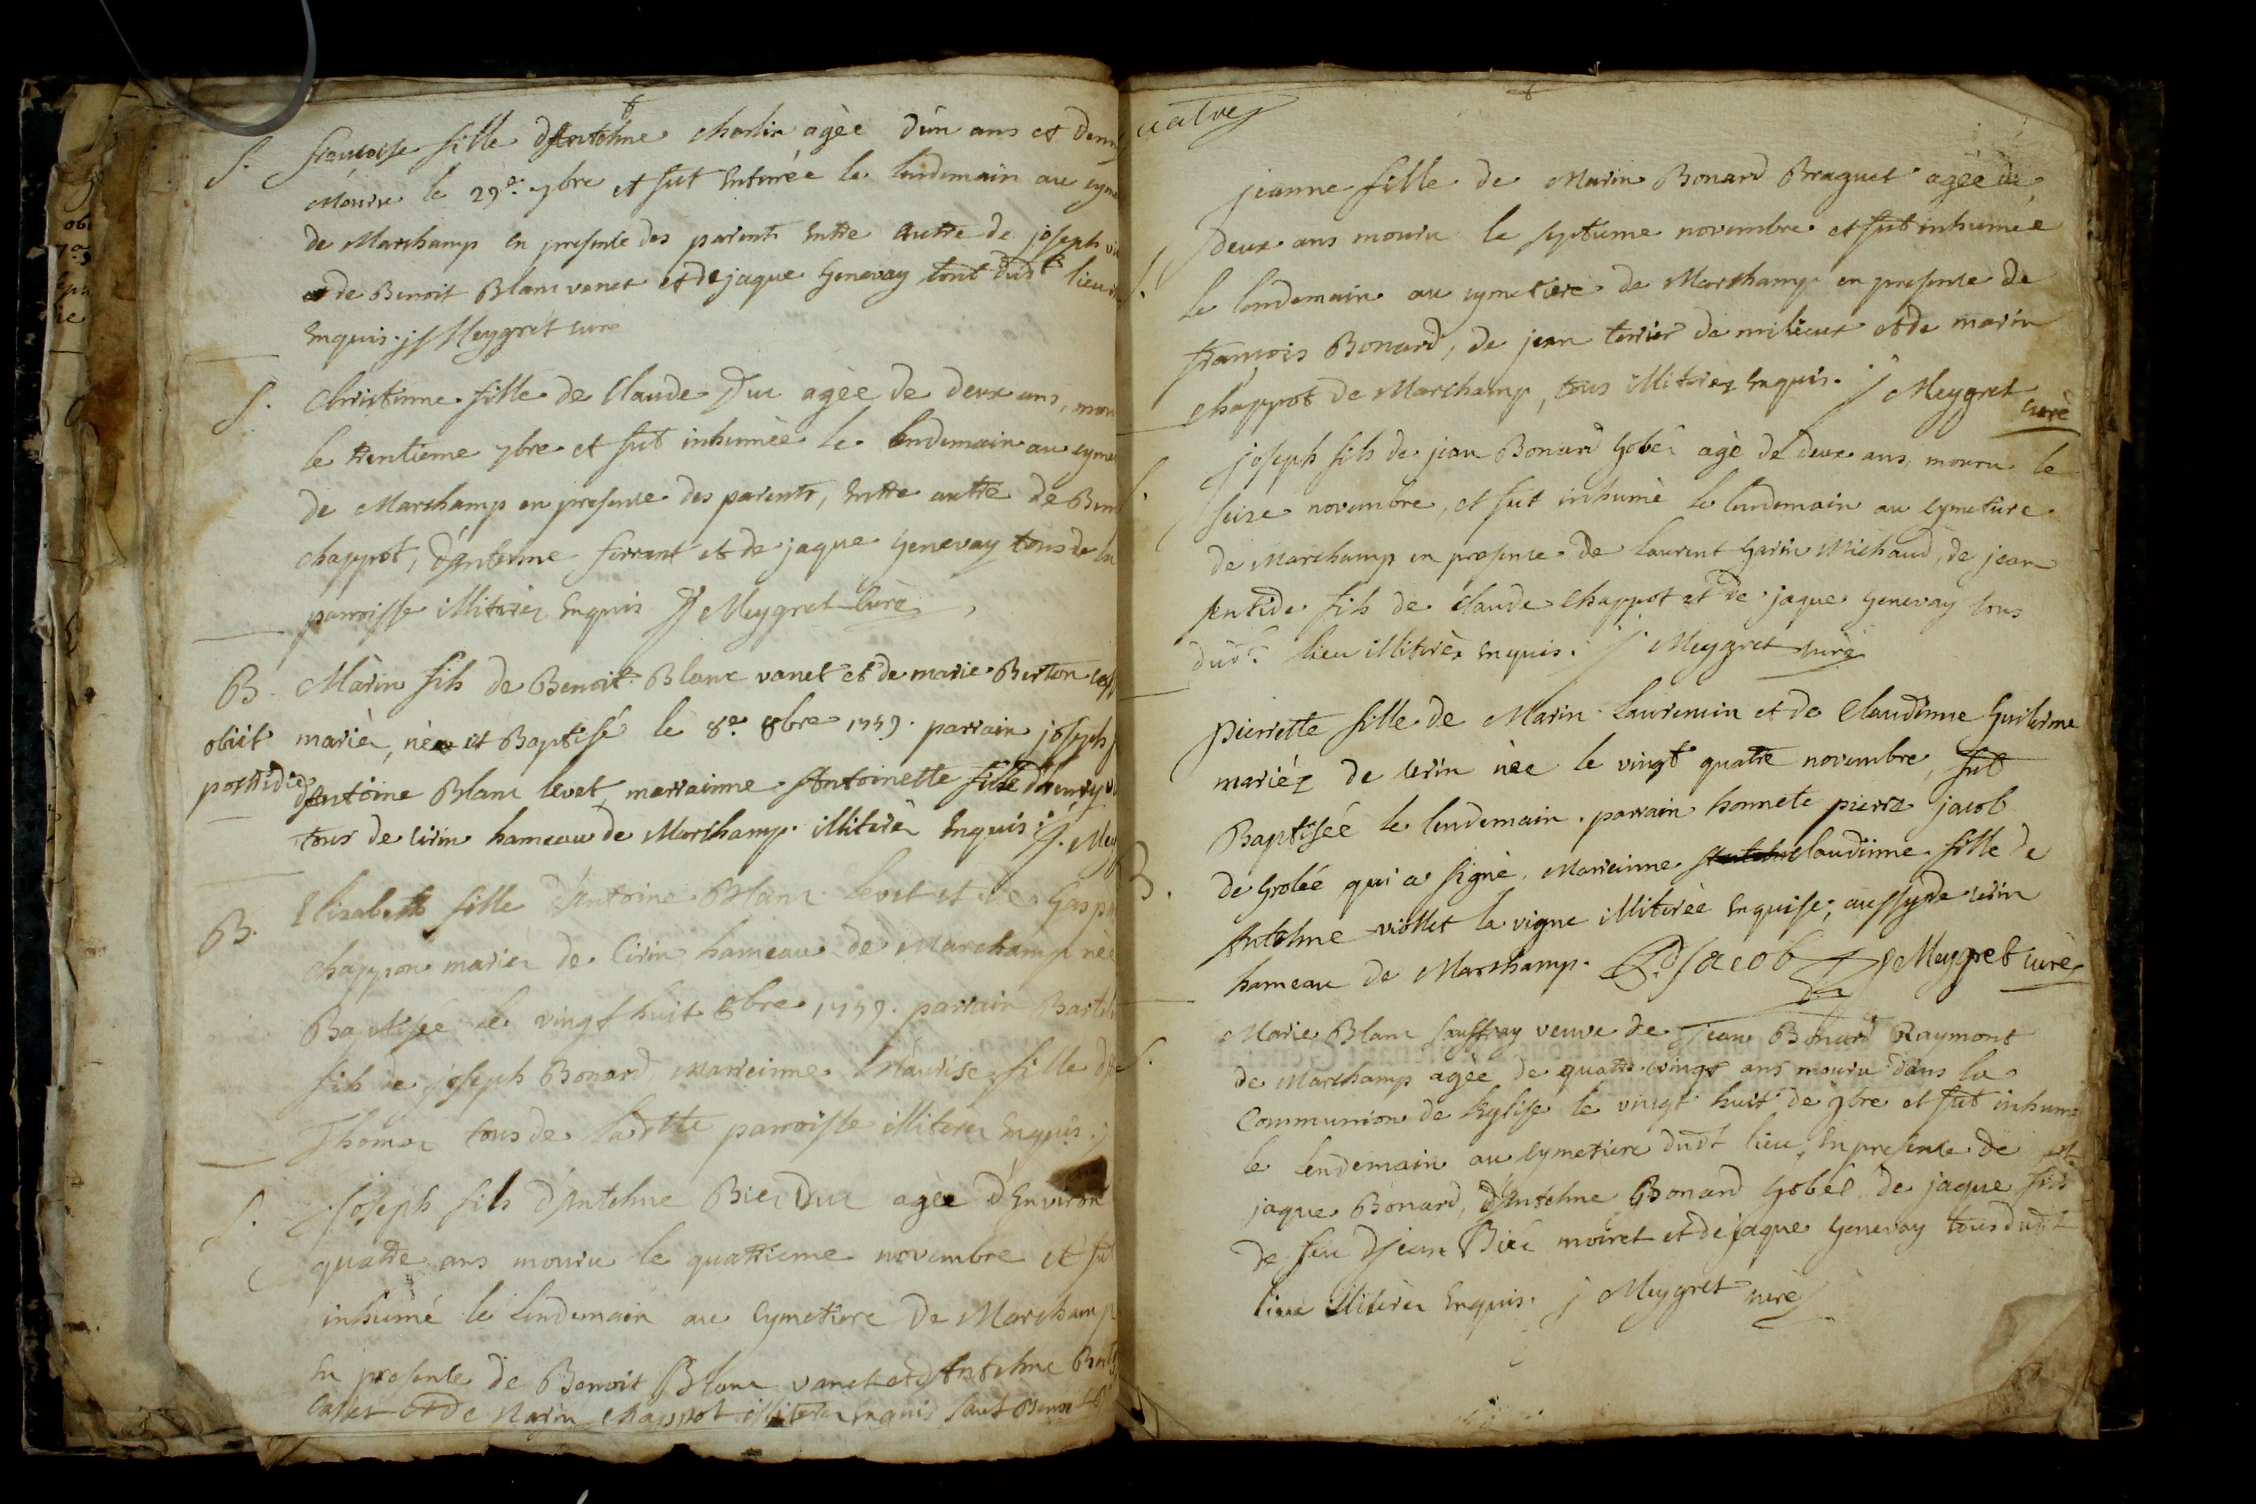 S. francoise fille d'Antelme charlin agèe d'un ans et demy
mouru le 29e. 7bre et fut enterrée le lendemain au cyme
de Marchamp en presence des parents entre autre de joseph
et de Benoit Blanc vanet et de jaque Genevay tout dudt lieu
enquis. j Meygret curé
S. Christinne fille de Claude Duc agèe de deux ans, mou
le trentieme 7bre et fut inhumèe le lendemain au cyme
de Marchamp en presence des parents, entre autre de Ben
chappot, d'Antelme ferrant et de jaque Genevay tous de la
parroisse illiterez enquis j Meygret curè
B. Marin fils de Benoit Blanc vanet et de marie Berton
obiit mariéz, nèe et Baptisé le 8e 8bre 1759. parrain joseph
postridie d'Antoine Blanc levet, marrainne Antoinette fille d'henry
tous de cirin hameau de Marchamp. illiteréz enquis. j. Mey
B. Elizabeth fille d'Antoine Blanc levet et de Gasp
chappon mariéz de Cirin hameau de Marchamp née
Baptisée le vingt huit 8bre 1759. parrain Bartel
fils de joseph Bonard, marreinne Maurise fille d
Thomas tous de ladtte parroisse illiterez enquis. j
S. Joseph fils d'Antelme Biez Duc agèe d'Environ
quatre ans mouru le quatrieme novembre et fu
inhumé le lendemain au Cymetiere de Marchamp
en presence de Benoit Blanc vanet et d'Antelme
et de Marin chappot illiterez enquis sauf Benoit
quatre
jeanne fille de Marin Bonard Braguet agèe de
deux ans mouru le septieme novembre et fut inhumèe
S. le lendemain au cymetiere de Marchamp en presence de
francois Bonard, de jean terrier de milieux et de marin
chappot de Marchamp, tous illiterez enquis. j Meygret curè
joseph fils de jean Bonard Gobel agè de deux ans, mouru le
S. seize novembre, et fut inhumè le lendemain au cymetiere
de Marchamp en presence de laurent Garin Michaud, de jean
Antide fils de Claude chappot et de jaque Genevay tous
dudt lieu illiterèz enquis. j Meygret curè
pierrette fille de Marin Laurencin et de Claudinne Guillerme
mariéz de cirin née le vingt quatre novembre, fut
Baptiséé le lendemain. parrain honnete pierre jacob
B. de Groléé qui a signè. Marreinne claudinne fille de
Antelme viollet la vigne illiterèe enquise, aussy de cirin
hameau de Marchamp. P. jacob j Meygret curè
S. Marie Blanc jauffray veuve de jean Bonard Raymont
de Marchamp agèe de quatre vingt ans mouru dans la
Communion de l'Eglise le vingt huit de 9bre et fut inhume
le lendemain au cymetiere dudt lieu, en presence de
jaque Bonard, d'Antelme Bonard Gobel de jaque fils
de feu jean Biéz moiret et de jaque Genevay tous dudt
lieu illiterèz enquis. j Meygret curè